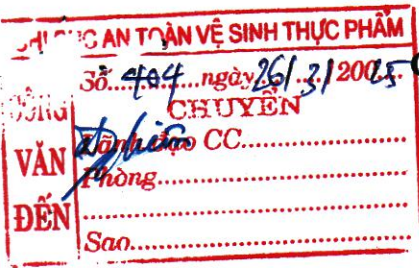 CHI CỤC AN TOÀN VỆ SINH THỰC PHẨM
CÔNG VĂN ĐẾN
Số....404....ngày 26/3/2025
CHUYỂN
Lãnh đạo CC..................
Phòng..................
..................
Sao..................